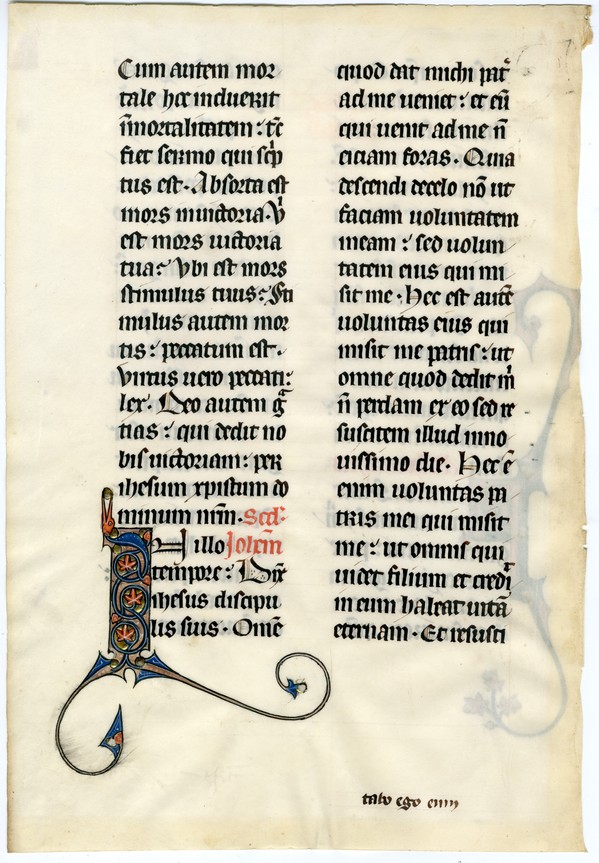 Cum autem mor
tale hoc induerit
īmortalitatem : tūc
fiet sermo qui scͥp
tus est . Absorta est
mors in uictoria . Vͥ
est mors uictoria
tua : Vbi est mors
stimulus tuus : Sti
mulus autem mor
tis : peccatum est .
Virtus uero peccati :
lex . Deo autem gͣ
tias : qui dedit no
bis uictoriam : per
ihesum xpistum do
minum nr̄m . Scd'm
In illo Joh'em
tempore : Dix̄
ihesus discipu
lis suis . Omē
quod dat michi pat͛
ad me ueniet : et eū
qui uenit ad me n̄
eiciam foras . Quia
descendi de celo nō ut
faciam uoluntatem
meam : sed uolun
tatem eius qui mi
sit me . Hec est autē
uoluntas eius qui
misit me patris : ut
omne quod dedit mͥ
n̄ perdam ex eo sed re
suscitem illud in no
uissimo die . Hec ē
enim uoluntas pa
tris mei qui misit
me : ut omnis qui
uidet filium et credͥ
in eum habeat uitā
eternam . Et resusci
tabo ego eum